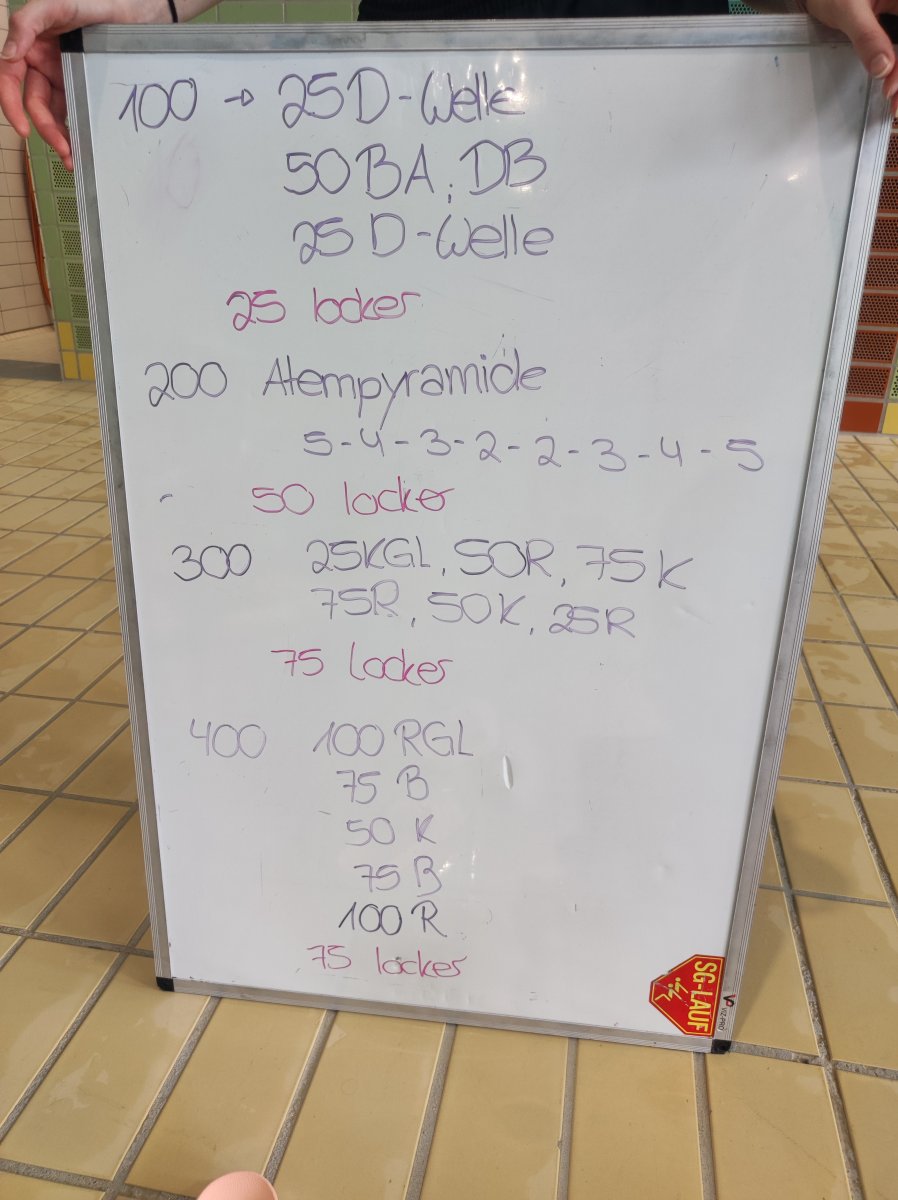 100 → 25 D-Welle
50 BA; DB
25 D-Welle
25 locker
200 Atempyramide
5-4-3-2-2-3-4-5
50 locker
300 25KGL, 50R, 75K
75R, 50K, 25R
75 locker
400 100 RGL
75 B
50 K
75 B
100 R
75 locker
SG-LAUF
VIZ-PRO